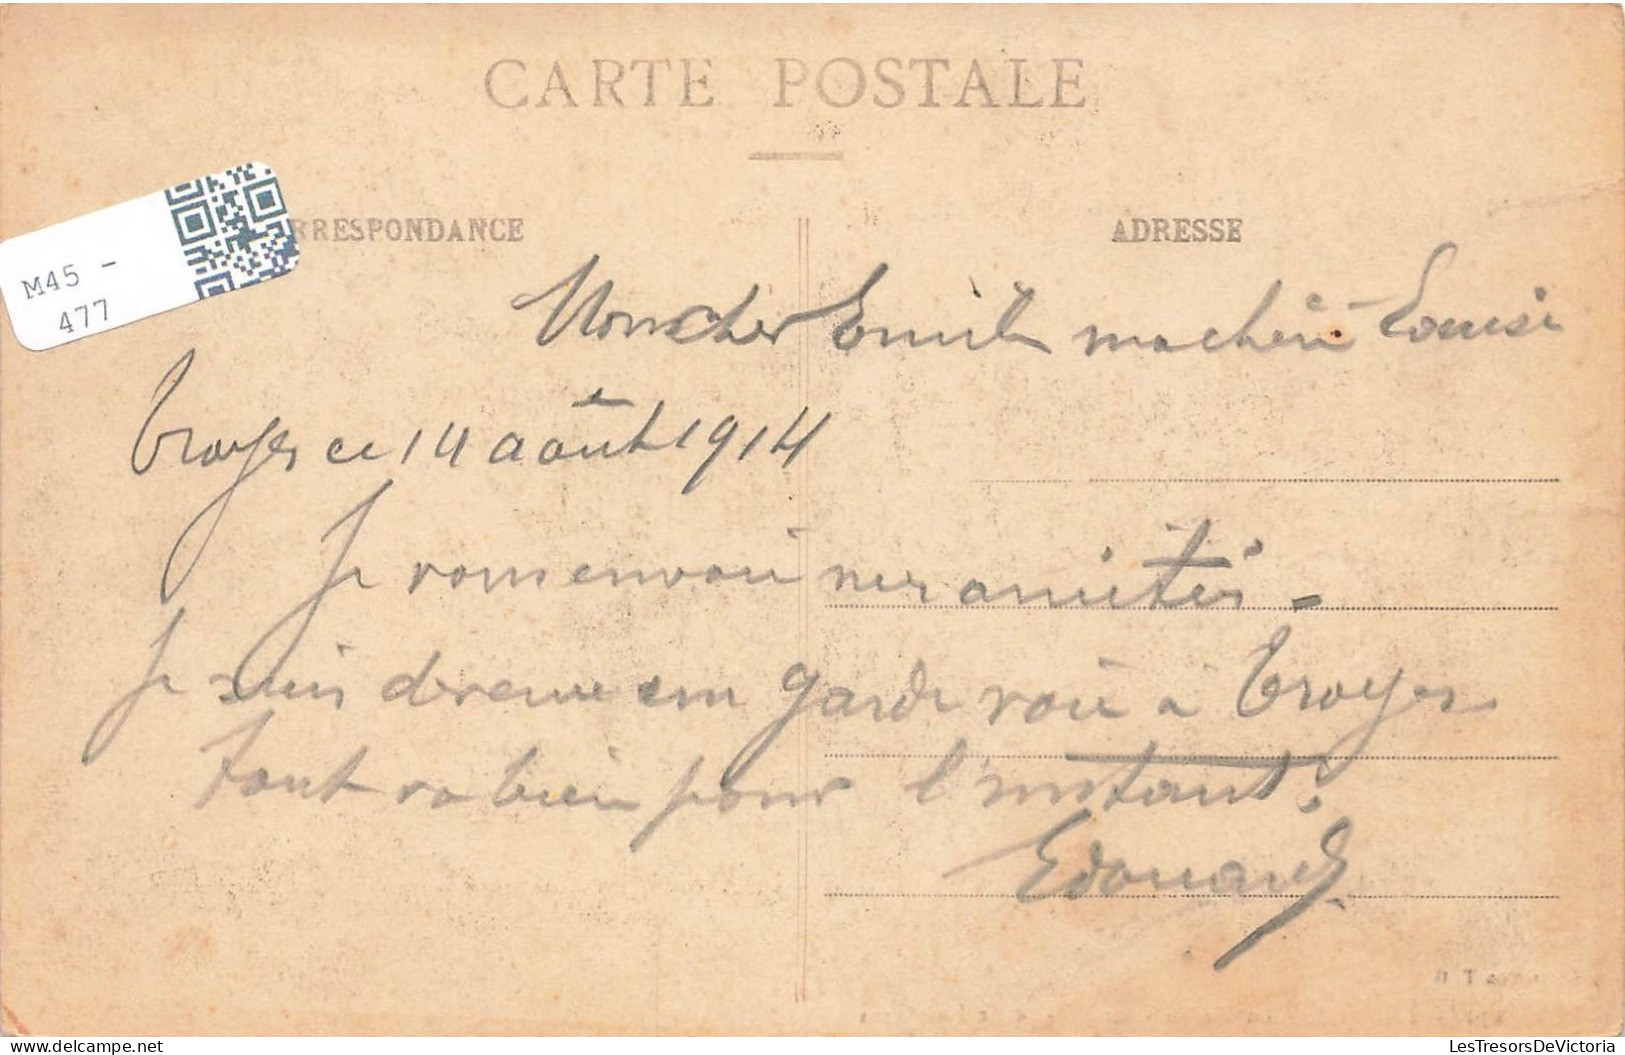 CARTE POSTALE
RRESPONDANCE
ADRESSE
M45 -
477
Mon cher Emile ma chère Louise
Troyes ce 14 août 1914
Je vous envoie mes amitiés -
Je suis devenue en garde voie à Troyes
tout va bien pour l'instant.
Edouard
LesTresorsDeVictoria